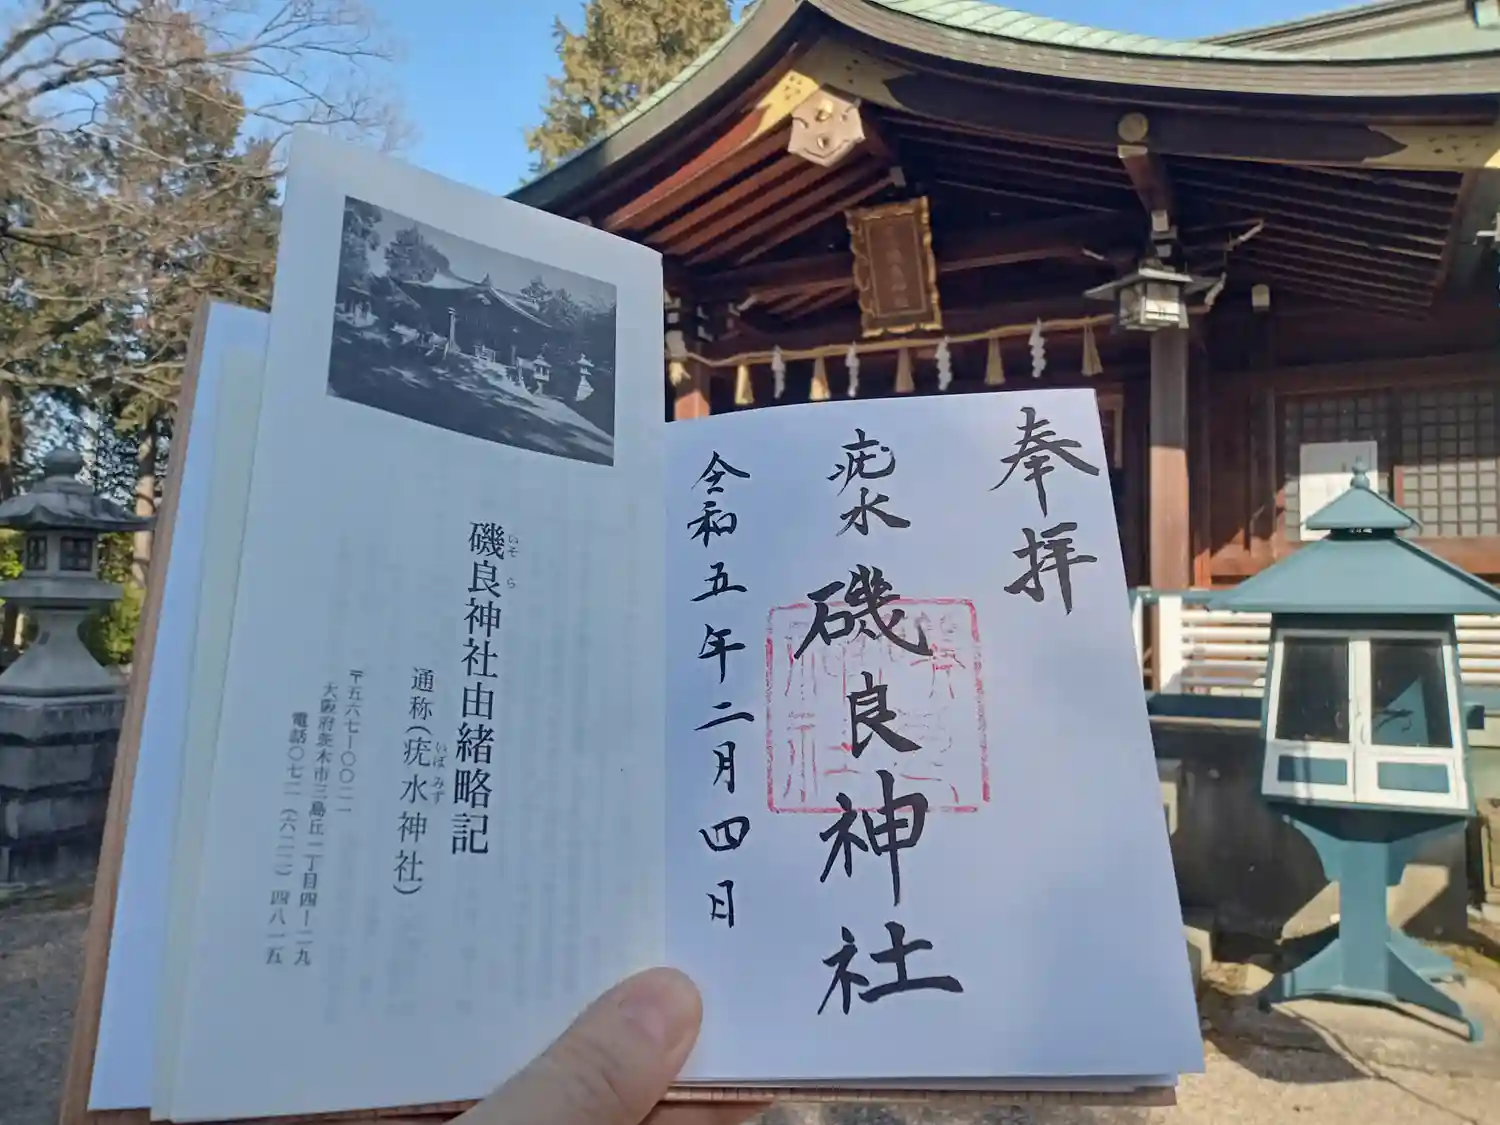 奉拝
疣水
磯良神社
令和五年二月四日
磯良神社由緒略記
いそら
通称(疣水神社)
いぼみず
〒五六七ー〇〇二一
大阪府茨木市三島丘一丁目四ー二九
電話〇七二(六二二)四八一五